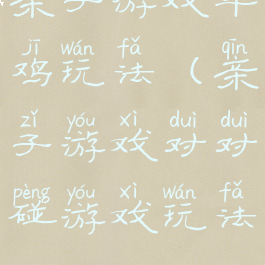 亲子游戏羊
jī wán fǎ qīn
鸡玩法(亲
zǐ yóu xì duì duì
子游戏对对
pèng yóu xì wán fǎ
碰游戏玩法